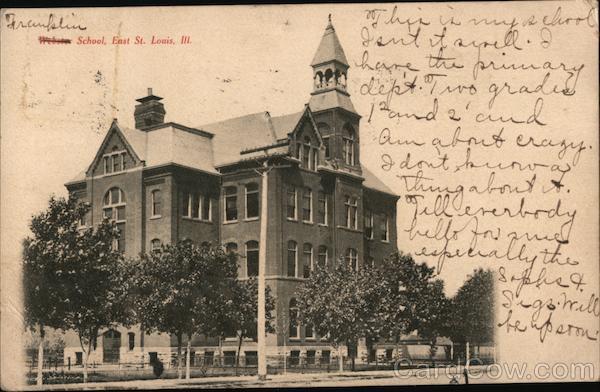 Franklin
Webster School, East St. Louis, Ill.
This is my school
Isn't it swell. I
have the primary
dep't. Two grades
1° and 2° and
am about crazy.
I don't know a
thing about it.
Tell everbody
hello for me
especially the
Sophs &
Sigs. Will
be up soon.
CardCow.com